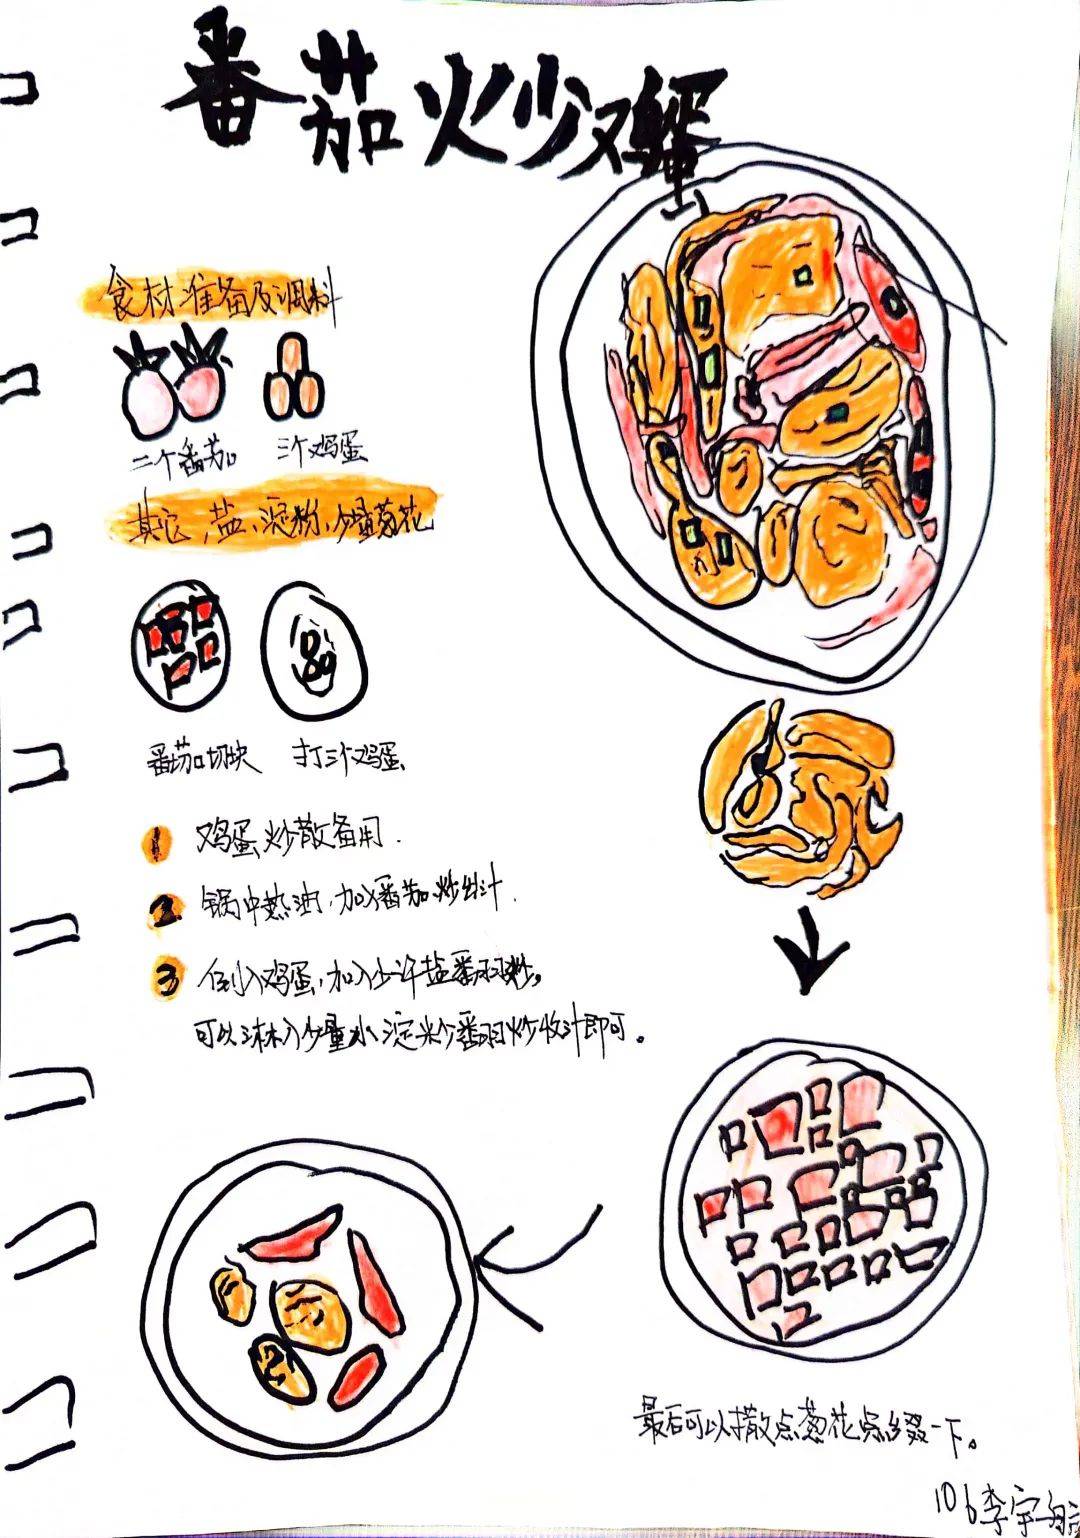 番茄炒鸡蛋
食材准备及调料
二个番茄
三个鸡蛋
其它,盐、淀粉、少量葱花
番茄切块
打三个鸡蛋
1 鸡蛋炒散备用.
2 锅中热油,加入番茄炒出汁.
3 倒入鸡蛋,加入少许盐番羽炒。
可以淋入少量水淀粉番羽炒收汁即可。
最后可以撒点葱花点缀一下。
106李宇航